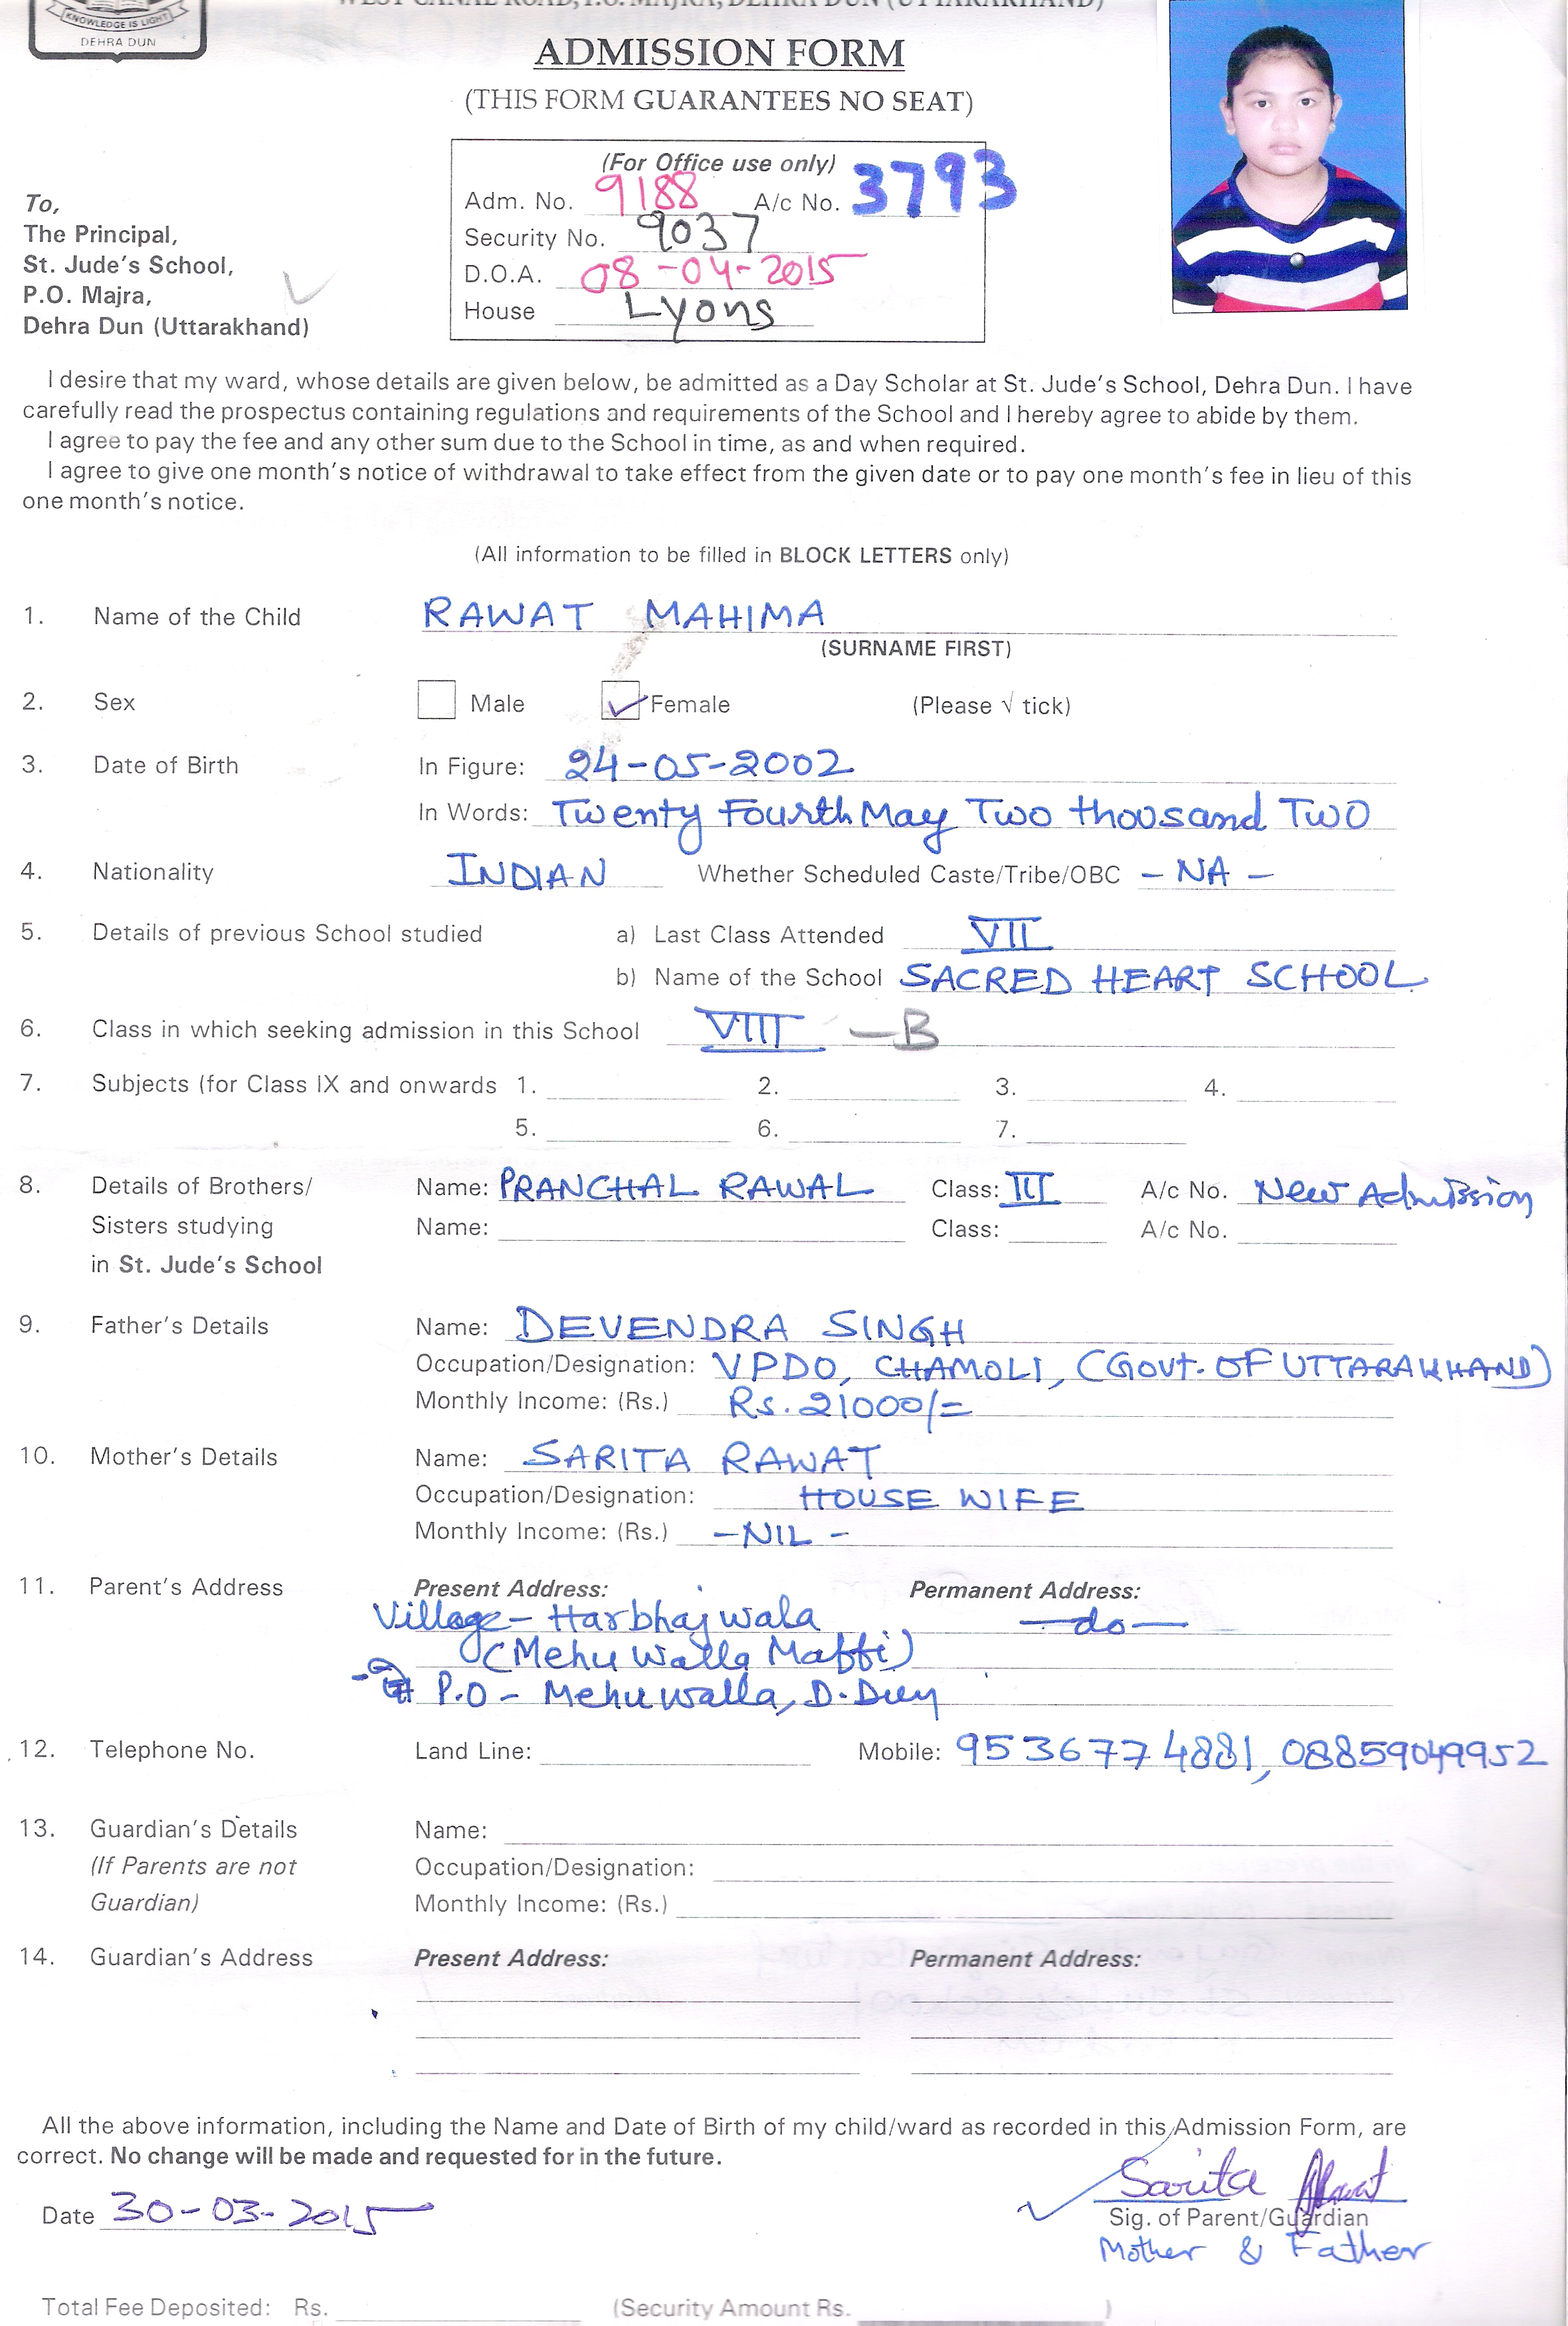 KNOWLEDGE IS LIGHT
DEHRA DUN
WEST CANAL ROAD, P.O. MAJRA, DEHRA DUN (UTTARAKHAND)
ADMISSION FORM
(THIS FORM GUARANTEES NO SEAT)
(For Office use only)
Adm. No. 9188 A/c No. 3793
Security No. 9037
D.O.A. 08-04-2015
House Lyons
To,
The Principal,
St. Jude's School,
P.O. Majra,
Dehra Dun (Uttarakhand)
I desire that my ward, whose details are given below, be admitted as a Day Scholar at St. Jude's School, Dehra Dun. I have
carefully read the prospectus containing regulations and requirements of the School and I hereby agree to abide by them.
I agree to pay the fee and any other sum due to the School in time, as and when required.
I agree to give one month's notice of withdrawal to take effect from the given date or to pay one month's fee in lieu of this
one month's notice.
(All information to be filled in BLOCK LETTERS only)
1. Name of the Child RAWAT MAHIMA
(SURNAME FIRST)
2. Sex Male ✓ Female (Please √ tick)
3. Date of Birth In Figure: 24-05-2002
In Words: Twenty Fourth May Two thousand Two
4. Nationality INDIAN Whether Scheduled Caste/Tribe/OBC - NA -
5. Details of previous School studied a) Last Class Attended VII
b) Name of the School SACRED HEART SCHOOL
6. Class in which seeking admission in this School VIII - B
7. Subjects (for Class IX and onwards 1. 2. 3. 4.
5. 6. 7.
8. Details of Brothers/ Name: PRANCHAL RAWAL Class: III A/c No. New Admission
Sisters studying Name: Class: A/c No.
in St. Jude's School
9. Father's Details Name: DEVENDRA SINGH
Occupation/Designation: VPDO, CHAMOLI, (Govt. OF UTTARAKHAND)
Monthly Income: (Rs.) Rs. 21000/=
10. Mother's Details Name: SARITA RAWAT
Occupation/Designation: HOUSE WIFE
Monthly Income: (Rs.) -NIL-
11. Parent's Address Present Address: Permanent Address:
Village - Harbhajwala —do—
(Mehuwalla Maffi)
P.O - Mehuwalla, D.Dun
12. Telephone No. Land Line: Mobile: 9536774881, 08859049952
13. Guardian's Details Name:
(If Parents are not Occupation/Designation:
Guardian) Monthly Income: (Rs.)
14. Guardian's Address Present Address: Permanent Address:
All the above information, including the Name and Date of Birth of my child/ward as recorded in this Admission Form, are
correct. No change will be made and requested for in the future.
Sarita
Date 30-03-2015 Sig. of Parent/Guardian
Mother & Father
Total Fee Deposited: Rs. (Security Amount Rs. )